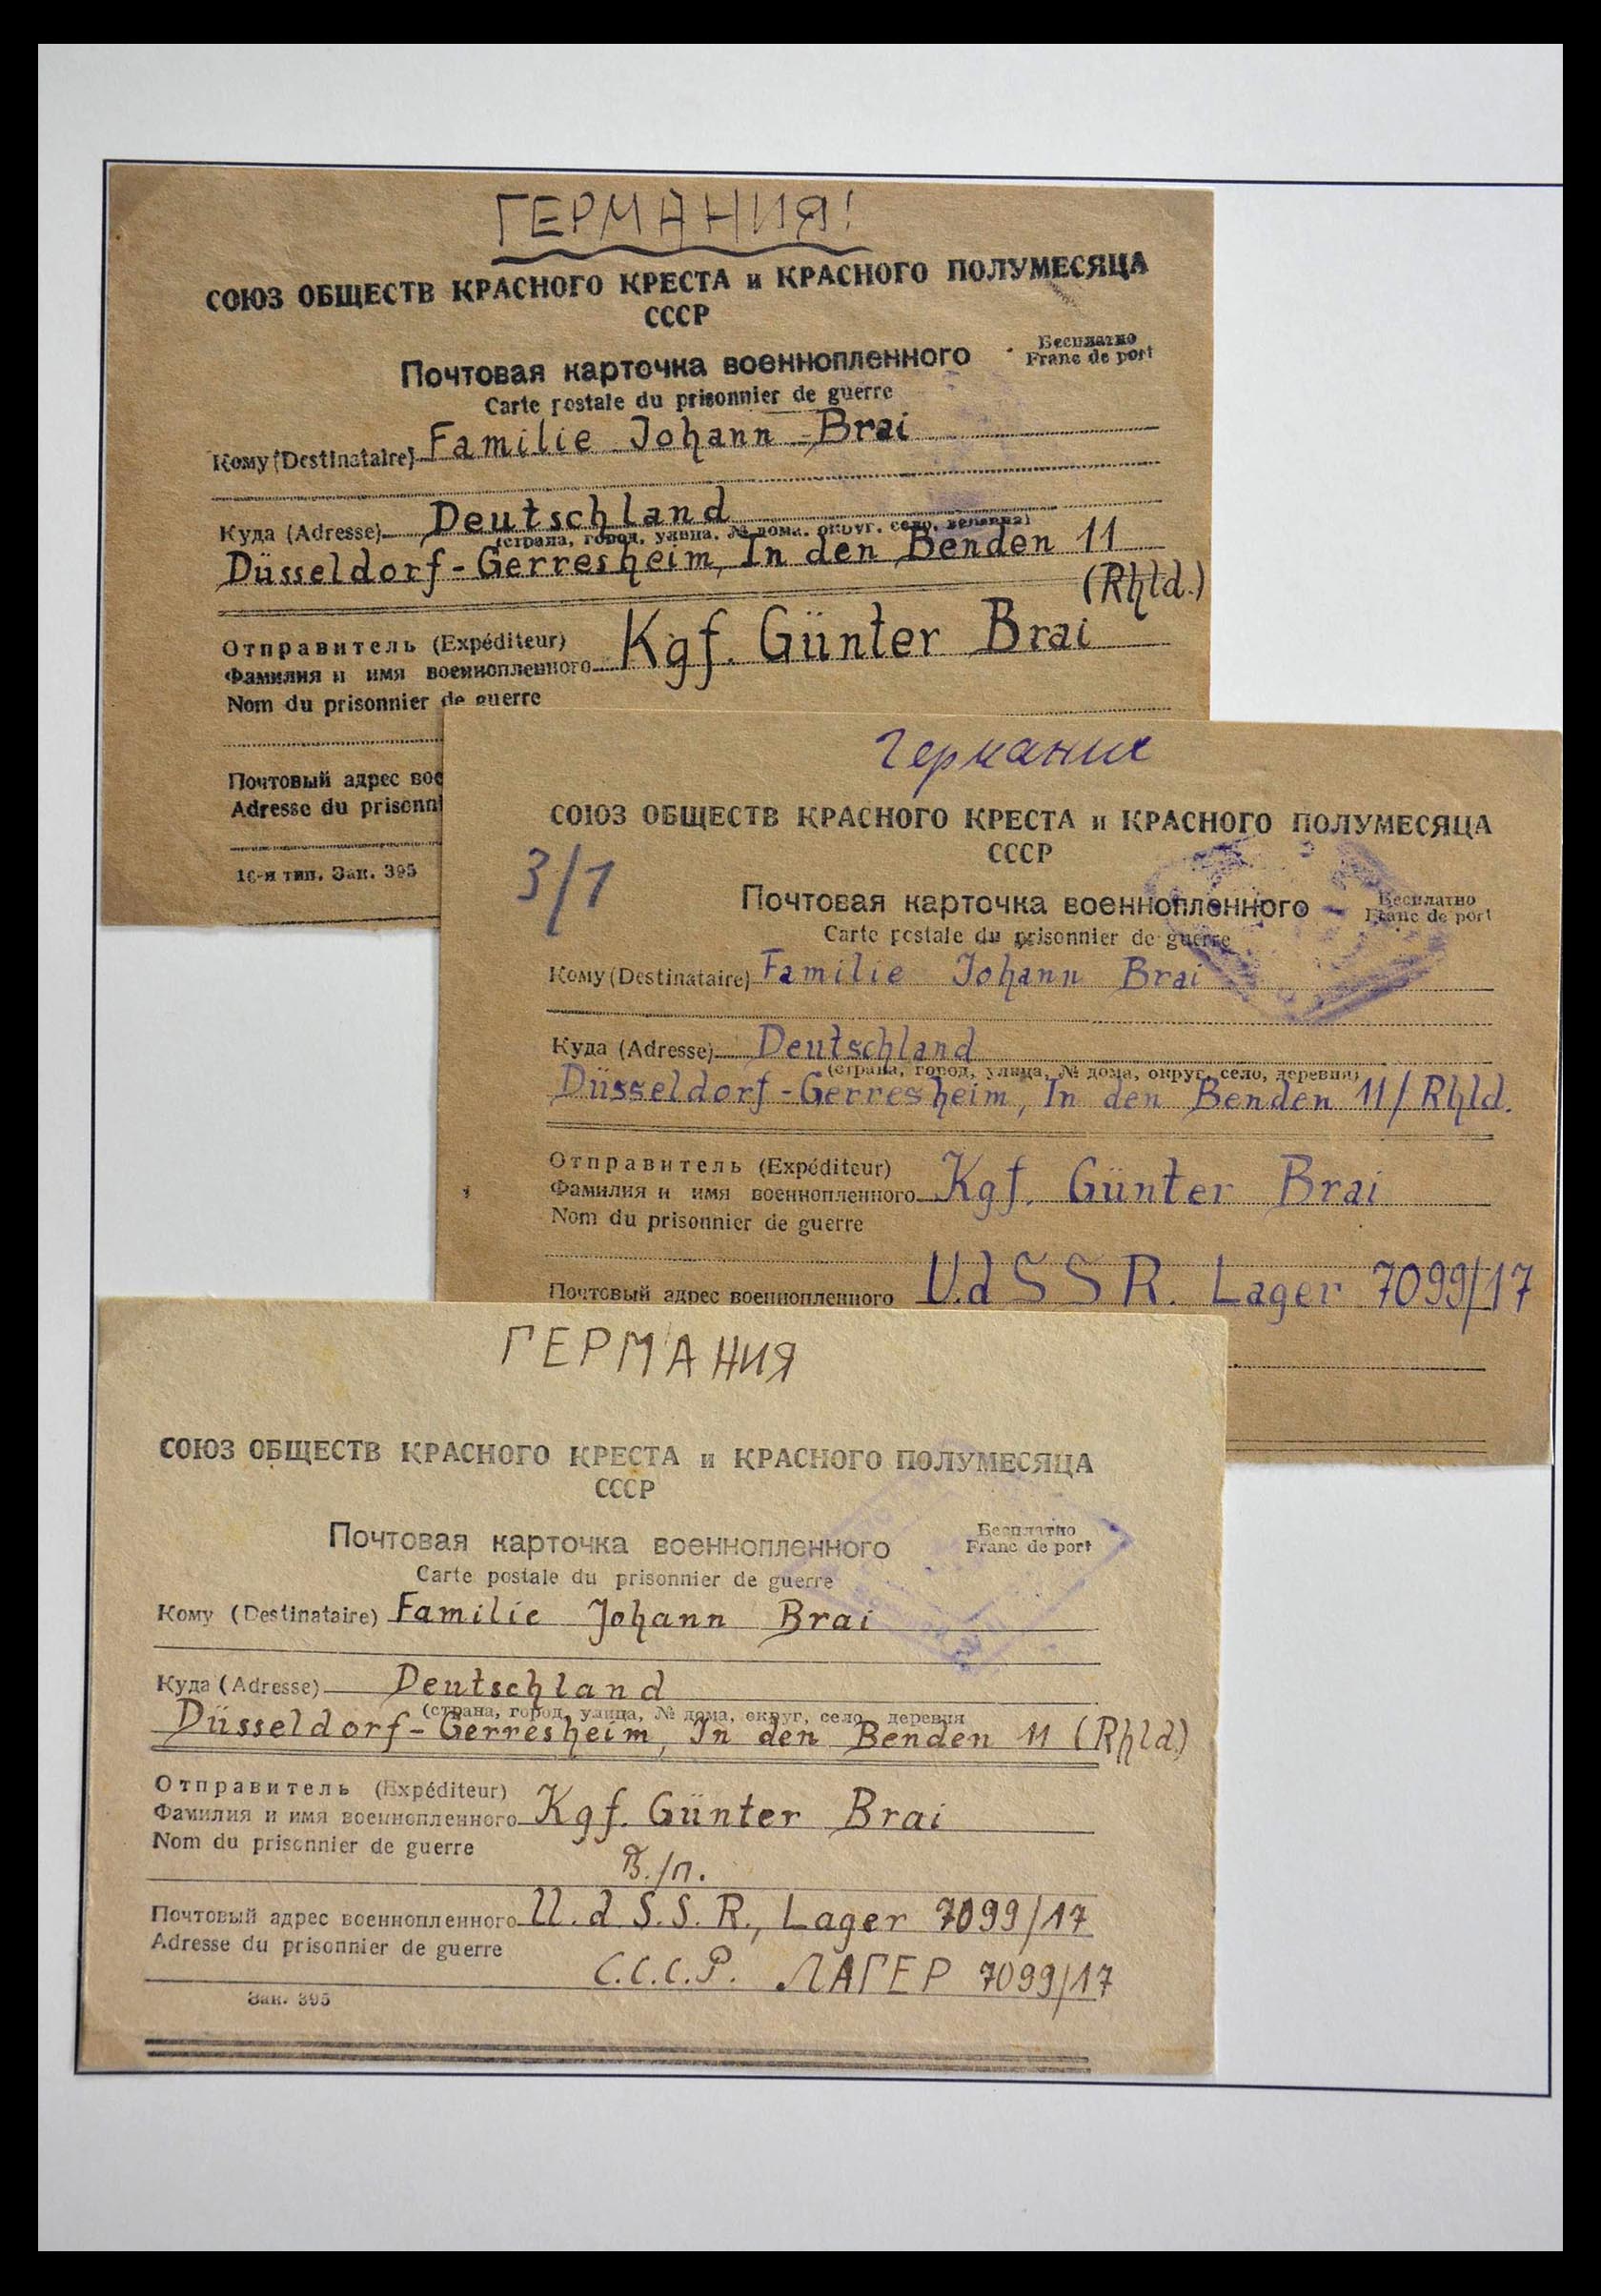 ГЕРМАНИЯ!
СОЮЗ ОБЩЕСТВ КРАСНОГО КРЕСТА и КРАСНОГО ПОЛУМЕСЯЦА
СССР
Почтовая карточка военнопленного
Бесплатно
Franc de port
Carte postale du prisonnier de guerre
Кому (Destinataire) Familie Johann Brai
Куда (Adresse) Deutschland
(страна, город, улица, № дома, округ, село, деревня)
Düsseldorf-Gerresheim, In den Benden 11
(Rhld.)
Отправитель (Expéditeur)
Фамилия и имя военнопленного Kgf. Günter Brai
Nom du prisonnier de guerre
Почтовый адрес вое
Adresse du prisonni
16-я тип. Зак. 395
Германие
СОЮЗ ОБЩЕСТВ КРАСНОГО КРЕСТА и КРАСНОГО ПОЛУМЕСЯЦА
СССР
3/1
Почтовая карточка военнопленного
Бесплатно
Franc de port
Carte postale du prisonnier de guerre
Кому (Destinataire) Familie Johann Brai
Куда (Adresse) Deutschland
(страна, город, улица, № дома, округ, село, деревня)
Düsseldorf-Gerresheim, In den Benden 11/Rhld.
Отправитель (Expéditeur)
Фамилия и имя военнопленного Kgf. Günter Brai
Nom du prisonnier de guerre
Почтовый адрес военнопленного U.d SSR. Lager 7099/17
ГЕРМАНИЯ
СОЮЗ ОБЩЕСТВ КРАСНОГО КРЕСТА и КРАСНОГО ПОЛУМЕСЯЦА
СССР
Почтовая карточка военнопленного
Бесплатно
Franc de port
Carte postale du prisonnier de guerre
Кому (Destinataire) Familie Johann Brai
Куда (Adresse) Deutschland
(страна, город, улица, № дома, округ, село, деревня
Düsseldorf-Gerresheim, In den Benden 11 (Rhld.)
Отправитель (Expéditeur)
Фамилия и имя военнопленного Kgf. Günter Brai
Nom du prisonnier de guerre
В./п.
Почтовый адрес военнопленного U.d.S.S.R., Lager 7099/17
Adresse du prisonnier de guerre
С.С.С.Р. ЛАГЕР 7099/17
Зак. 395